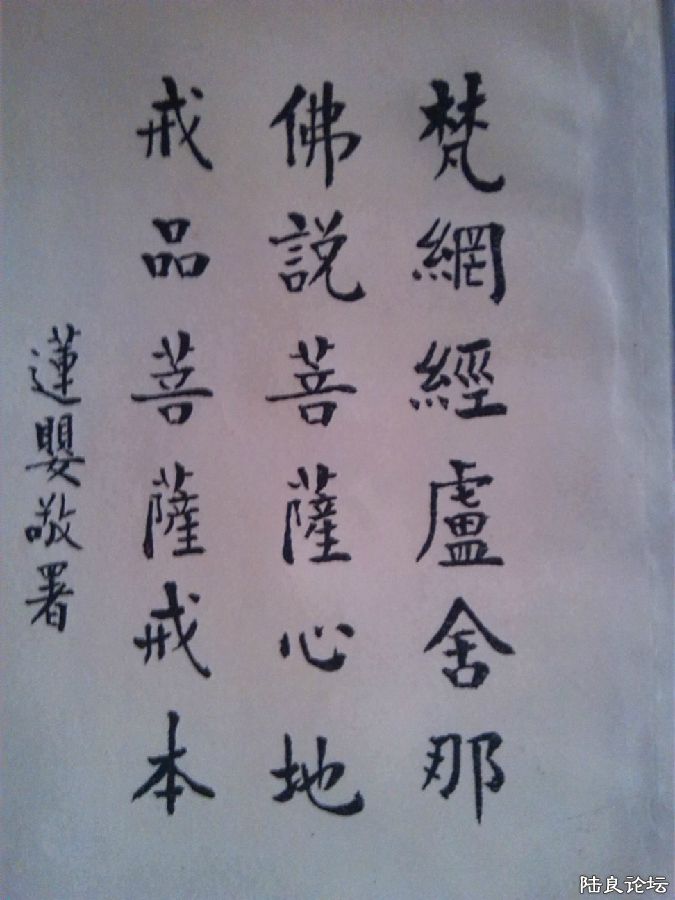 梵網經盧舍那
佛説菩薩心地
戒品菩薩戒本
蓮嬰敬署
陆良论坛